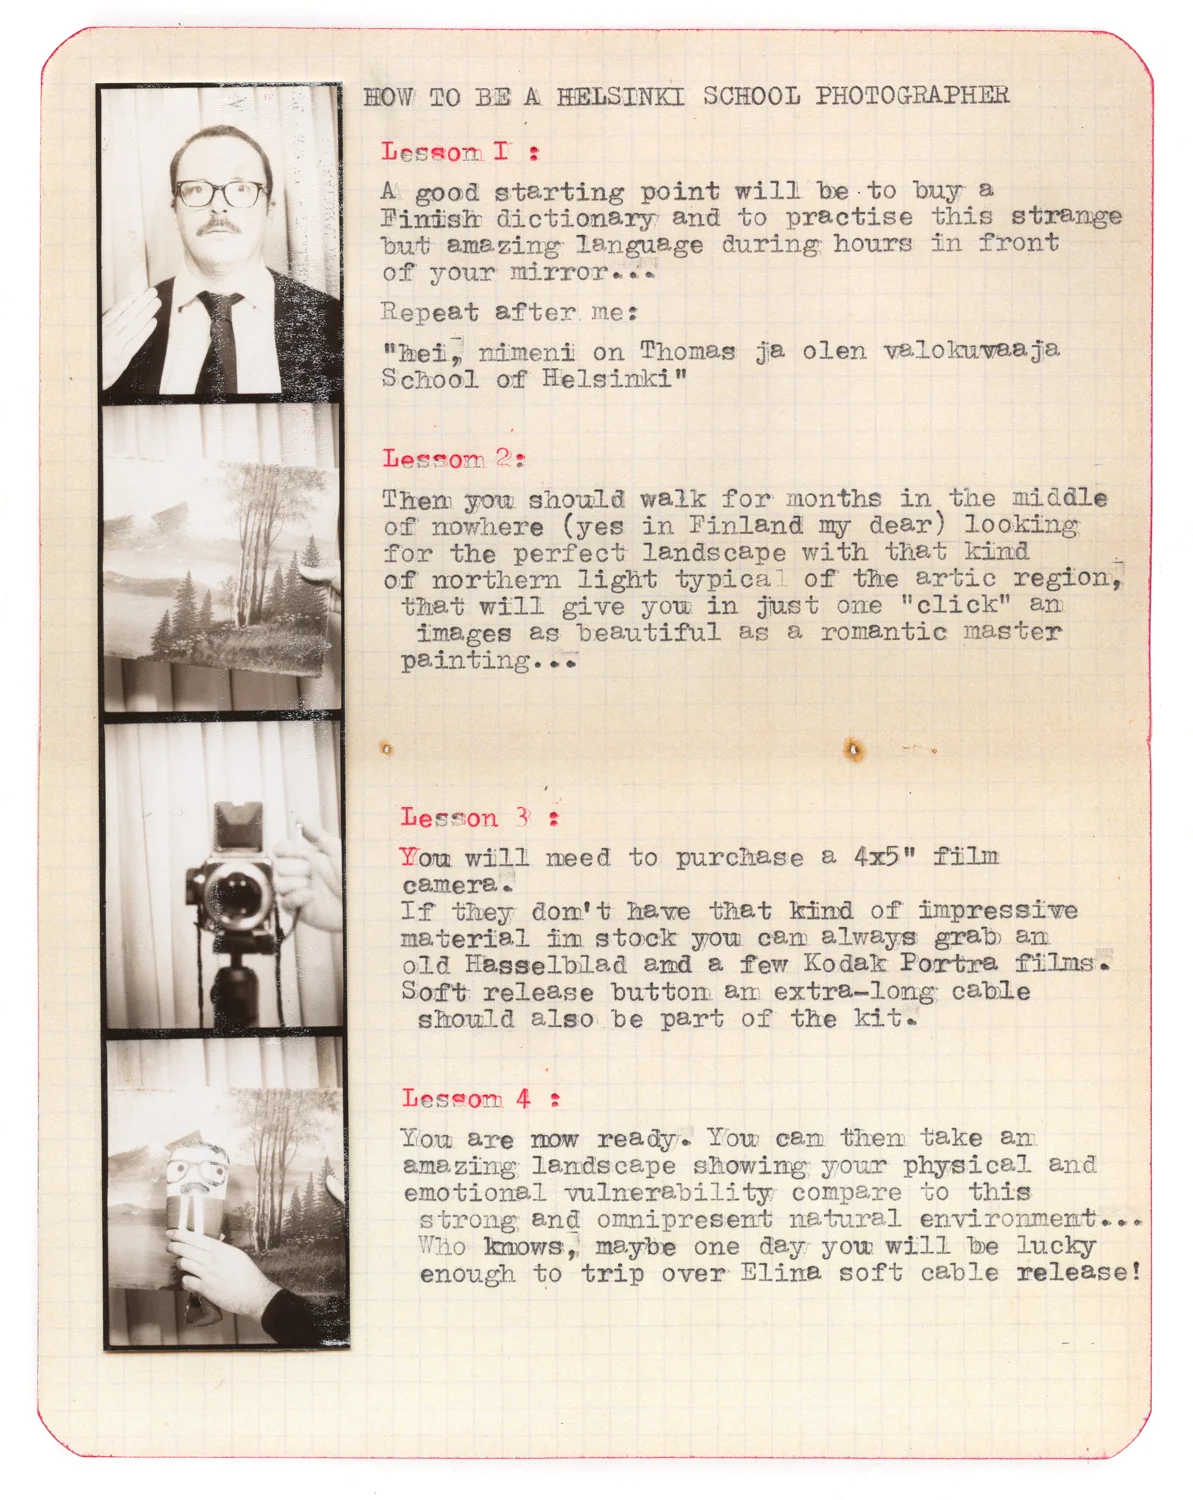 HOW TO BE A HELSINKI SCHOOL PHOTOGRAPHER
Lesson I :
A good starting point will be to buy a
Finish dictionary and to practise this strange
but amazing language during hours in front
of your mirror...
Repeat after me:
"hei, nimeni on Thomas ja olen valokuvaaja
School of Helsinki"
Lesson 2:
Then you should walk for months in the middle
of nowhere (yes in Finland my dear) looking
for the perfect landscape with that kind
of northern light typical of the artic region,
that will give you in just one "click" an
images as beautiful as a romantic master
painting...
Lesson 3 :
You will need to purchase a 4x5" film
camera.
If they don't have that kind of impressive
material in stock you can always grab an
old Hasselblad and a few Kodak Portra films.
Soft release button an extra-long cable
should also be part of the kit.
Lesson 4 :
You are now ready. You can then take an
amazing landscape showing your physical and
emotional vulnerability compare to this
strong and omnipresent natural environment...
Who knows, maybe one day you will be lucky
enough to trip over Elina soft cable release!